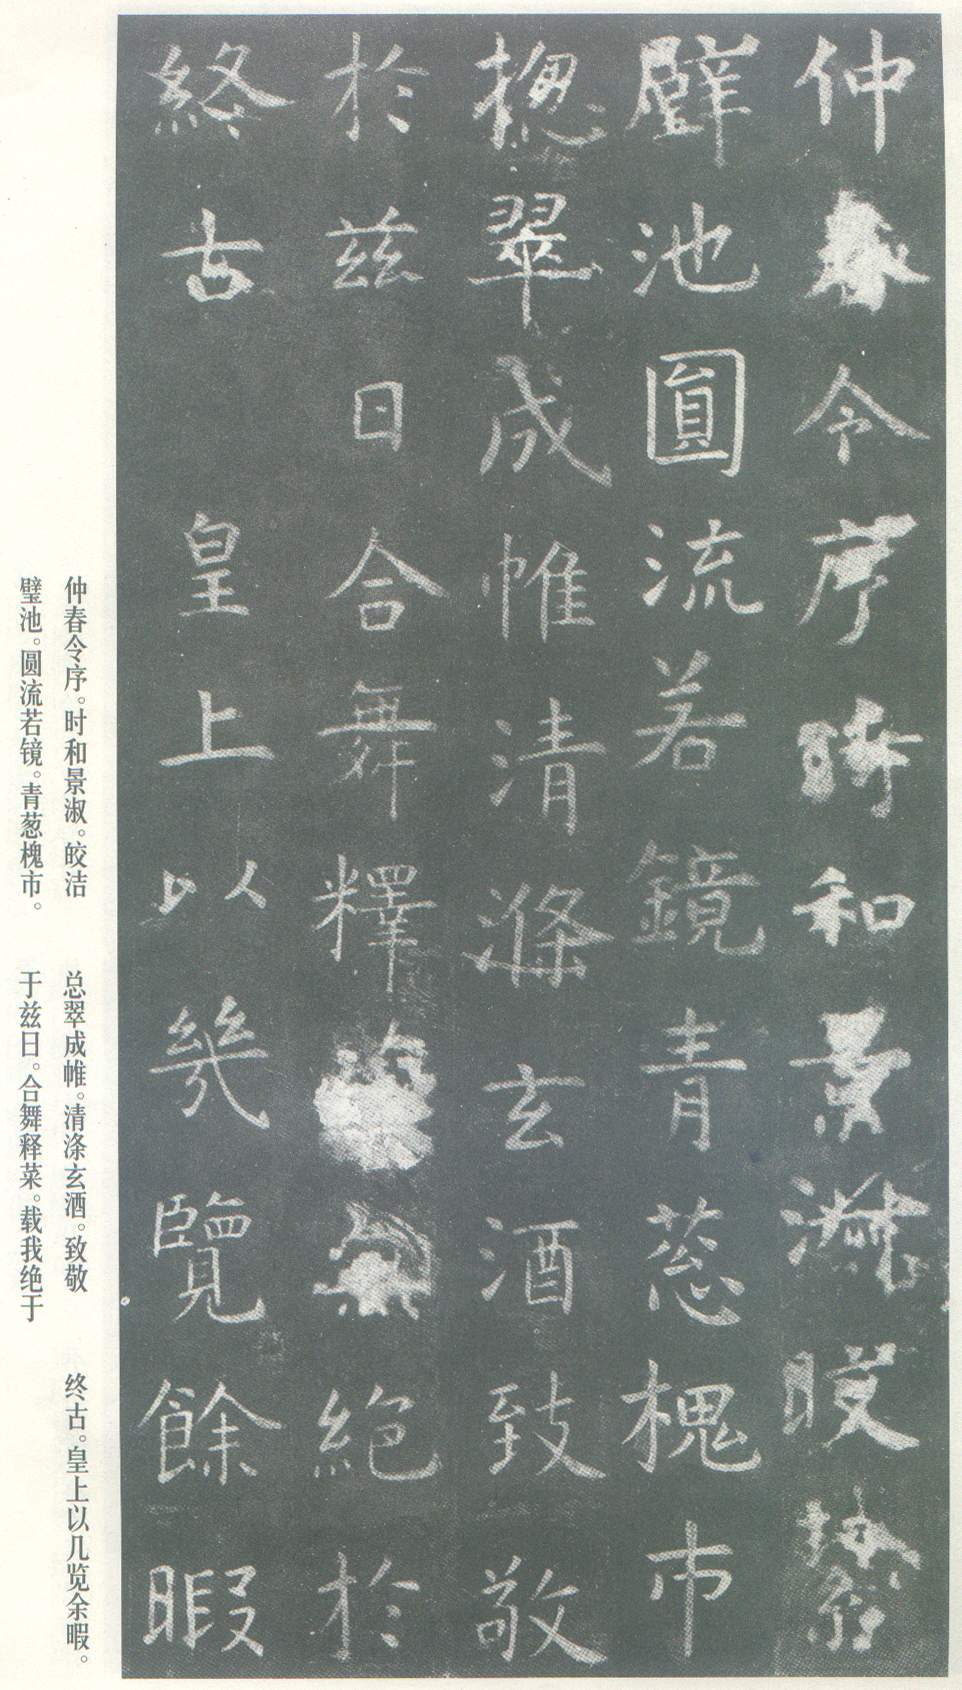 仲春令序時和景淑皎潔
璧池圓流若鏡青葱槐市
揔翠成帷清滌玄酒致敬
於兹日合舞釋菜絕於
終古皇上以幾覽餘暇
仲春令序。时和景淑。皎洁
璧池。圆流若镜。青葱槐市。
总翠成帷。清涤玄酒。致敬
于兹日。合舞释菜。载我绝于
终古。皇上以几览余暇。